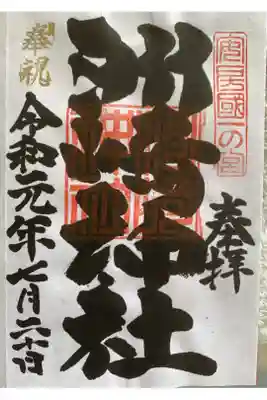 安房國一の宮
奉拝
洲崎神社
奉祝
令和元年七月二十日